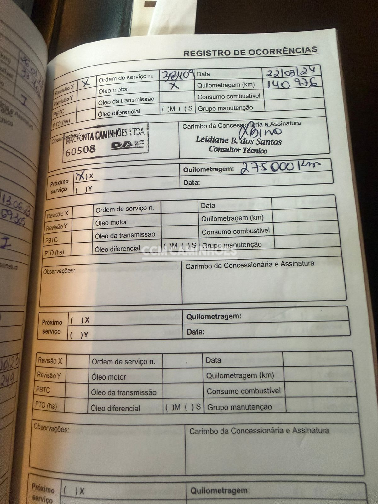 REGISTRO DE OCORRÊNCIAS
Revisão X X Ordem de serviço n. Data 22/03/24
Revisão Y Óleo motor X Quilometragem (km) 140 936
Óleo da transmissão Consumo combustível
PTO (hs) Óleo diferencial ( )M ( )S Grupo manutenção
Carimbo da Concessionária e Assinatura
CAMINHÕES LTDA
60508 DAF
Leidiane R. dos Santos
Consultor Técnico
Próximo serviço (X) X Quilometragem: 275000 Km
( ) Y Data:
Revisão X Ordem de serviço n. Data
Revisão Y Óleo motor Quilometragem (km)
PBTC Óleo da transmissão Consumo combustível
PTO (hs) Óleo diferencial ( )M ( )S Grupo manutenção
Observações: Carimbo da Concessionária e Assinatura
CCM CAMINHÕES
Próximo serviço ( ) X Quilometragem:
( ) Y Data:
Revisão X Ordem de serviço n. Data
Revisão Y Óleo motor Quilometragem (km)
PBTC Óleo da transmissão Consumo combustível
PTO (hs) Óleo diferencial ( )M ( )S Grupo manutenção
Observações: Carimbo da Concessionária e Assinatura
Próximo serviço ( ) X Quilometragem: